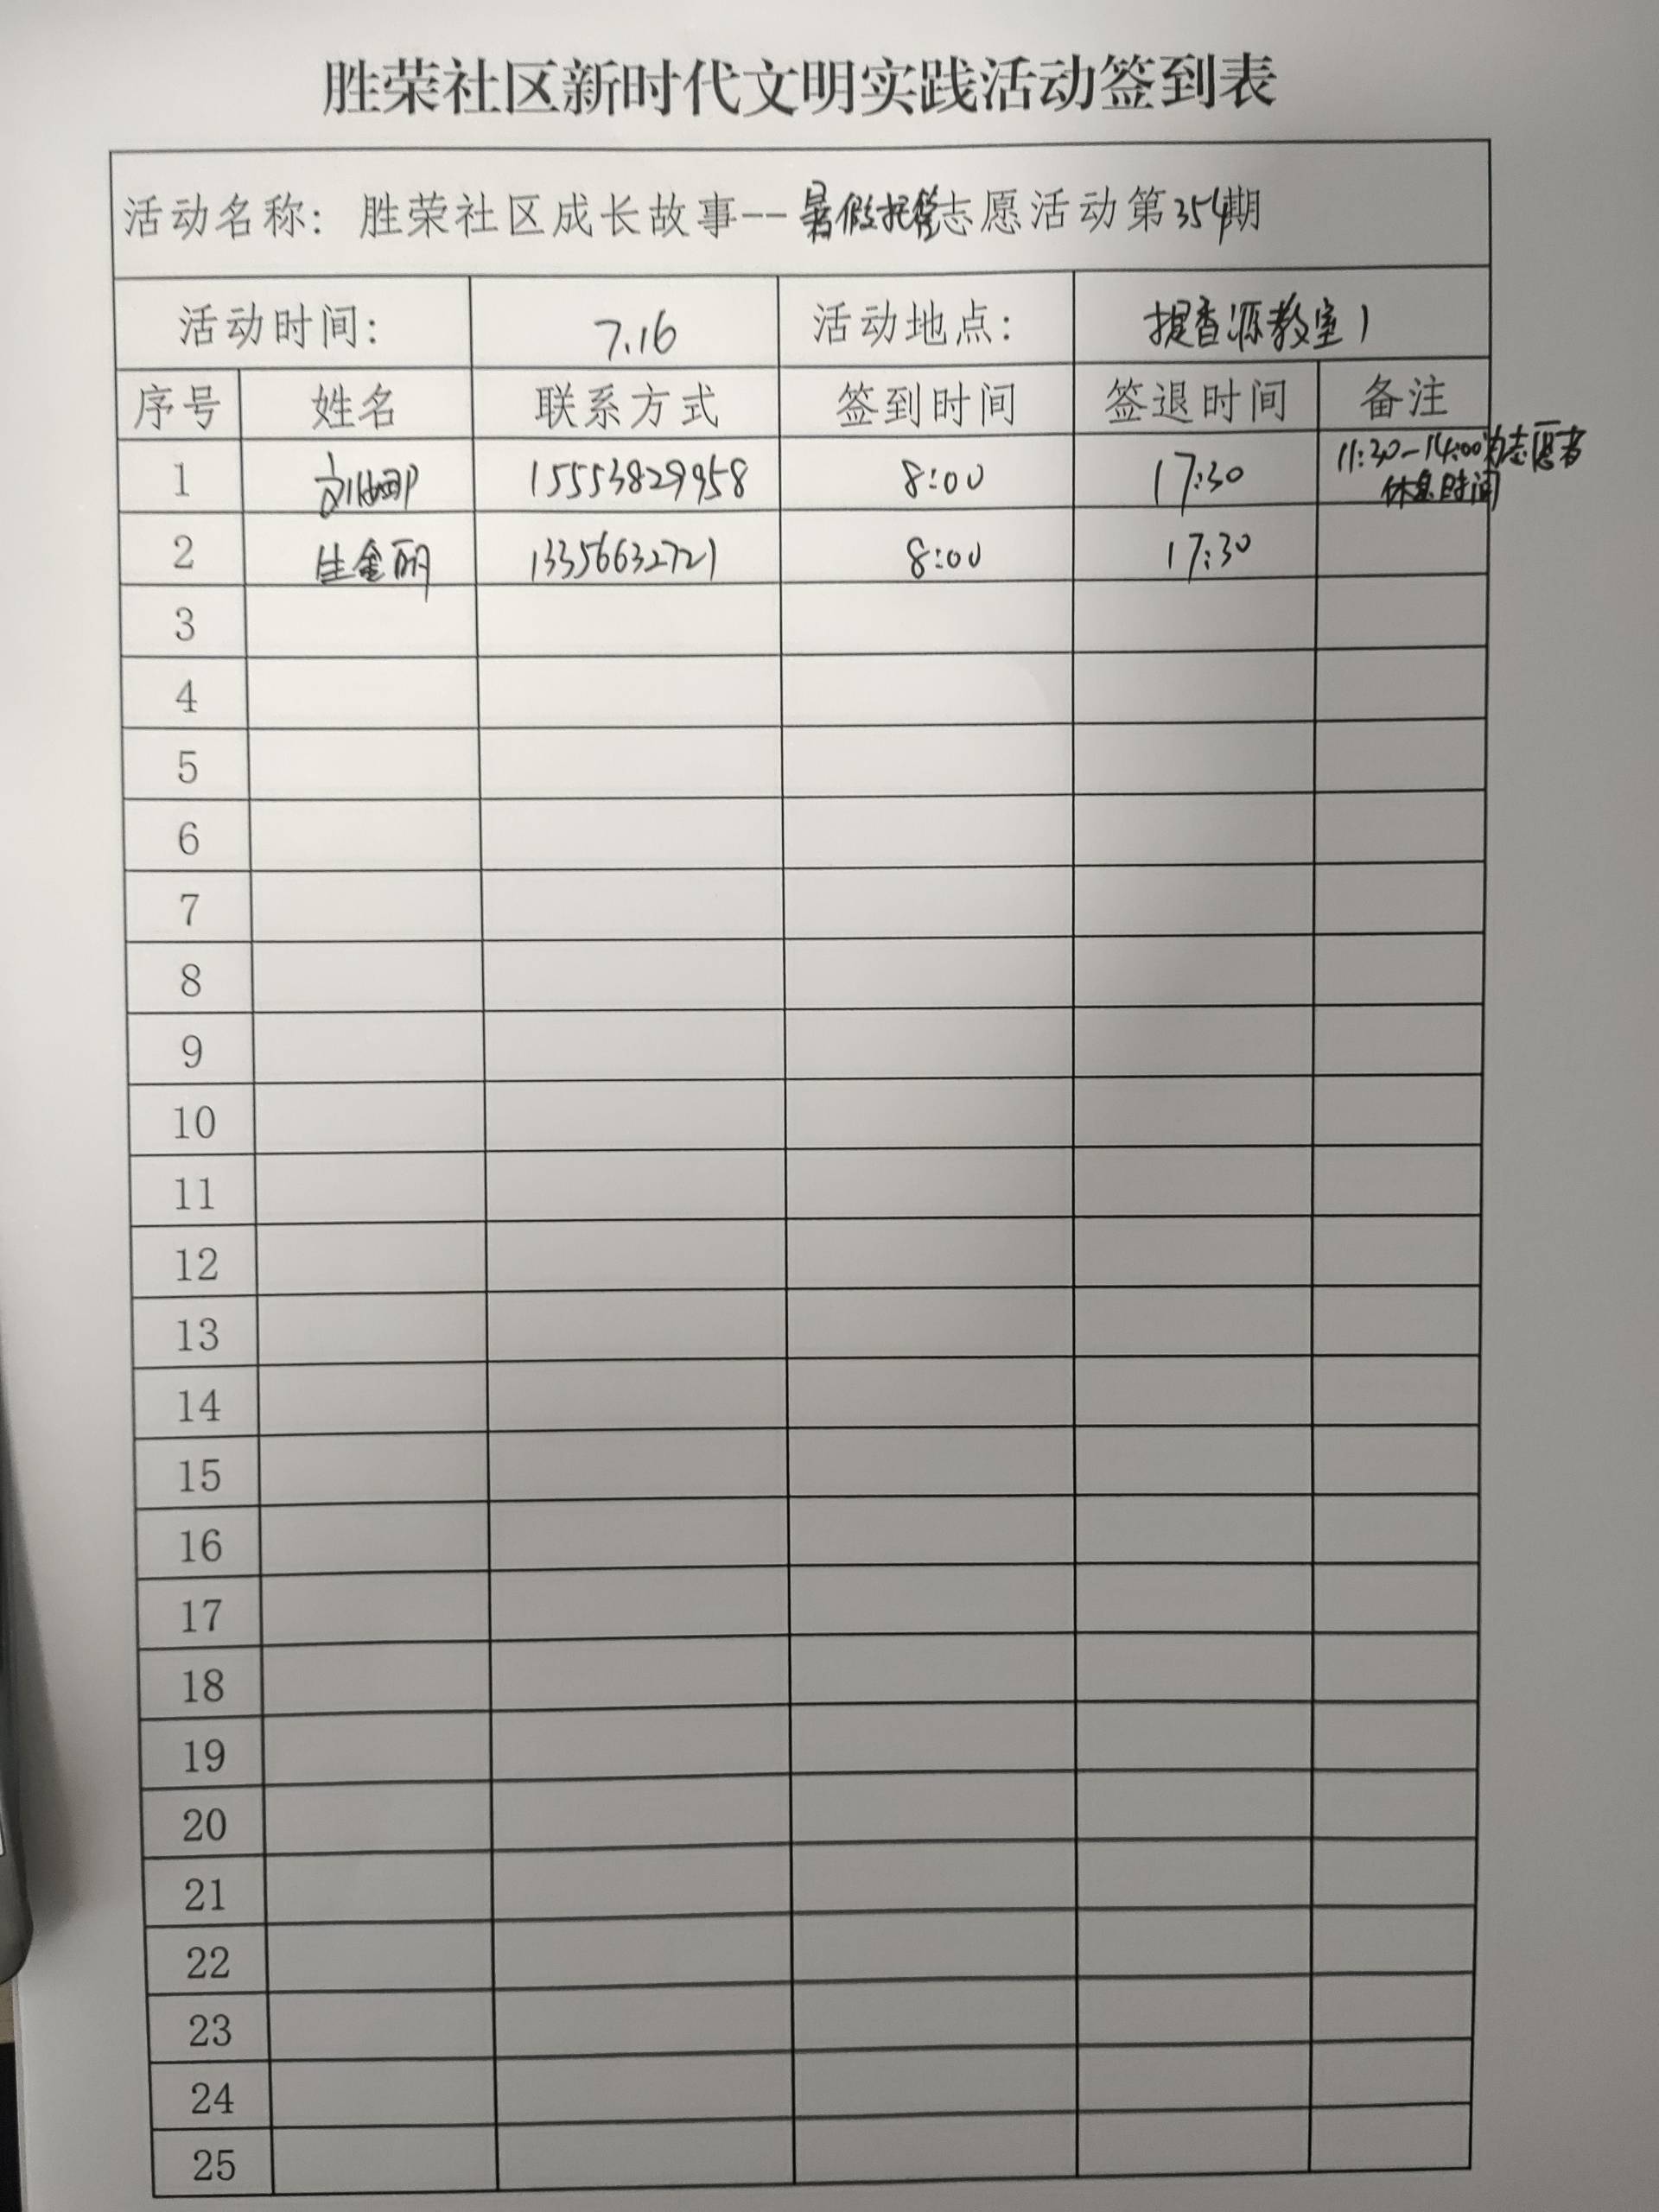 胜荣社区新时代文明实践活动签到表
活动名称：胜荣社区成长故事--暑假托管志愿活动第354期
活动时间： 7.16 活动地点： 提香源教室1
序号 姓名 联系方式 签到时间 签退时间 备注
1 刘娜 15553829958 8:00 17:30 11:30-14:00为志愿者
休息时间
2 生金丽 13356632721 8:00 17:30
3
4
5
6
7
8
9
10
11
12
13
14
15
16
17
18
19
20
21
22
23
24
25